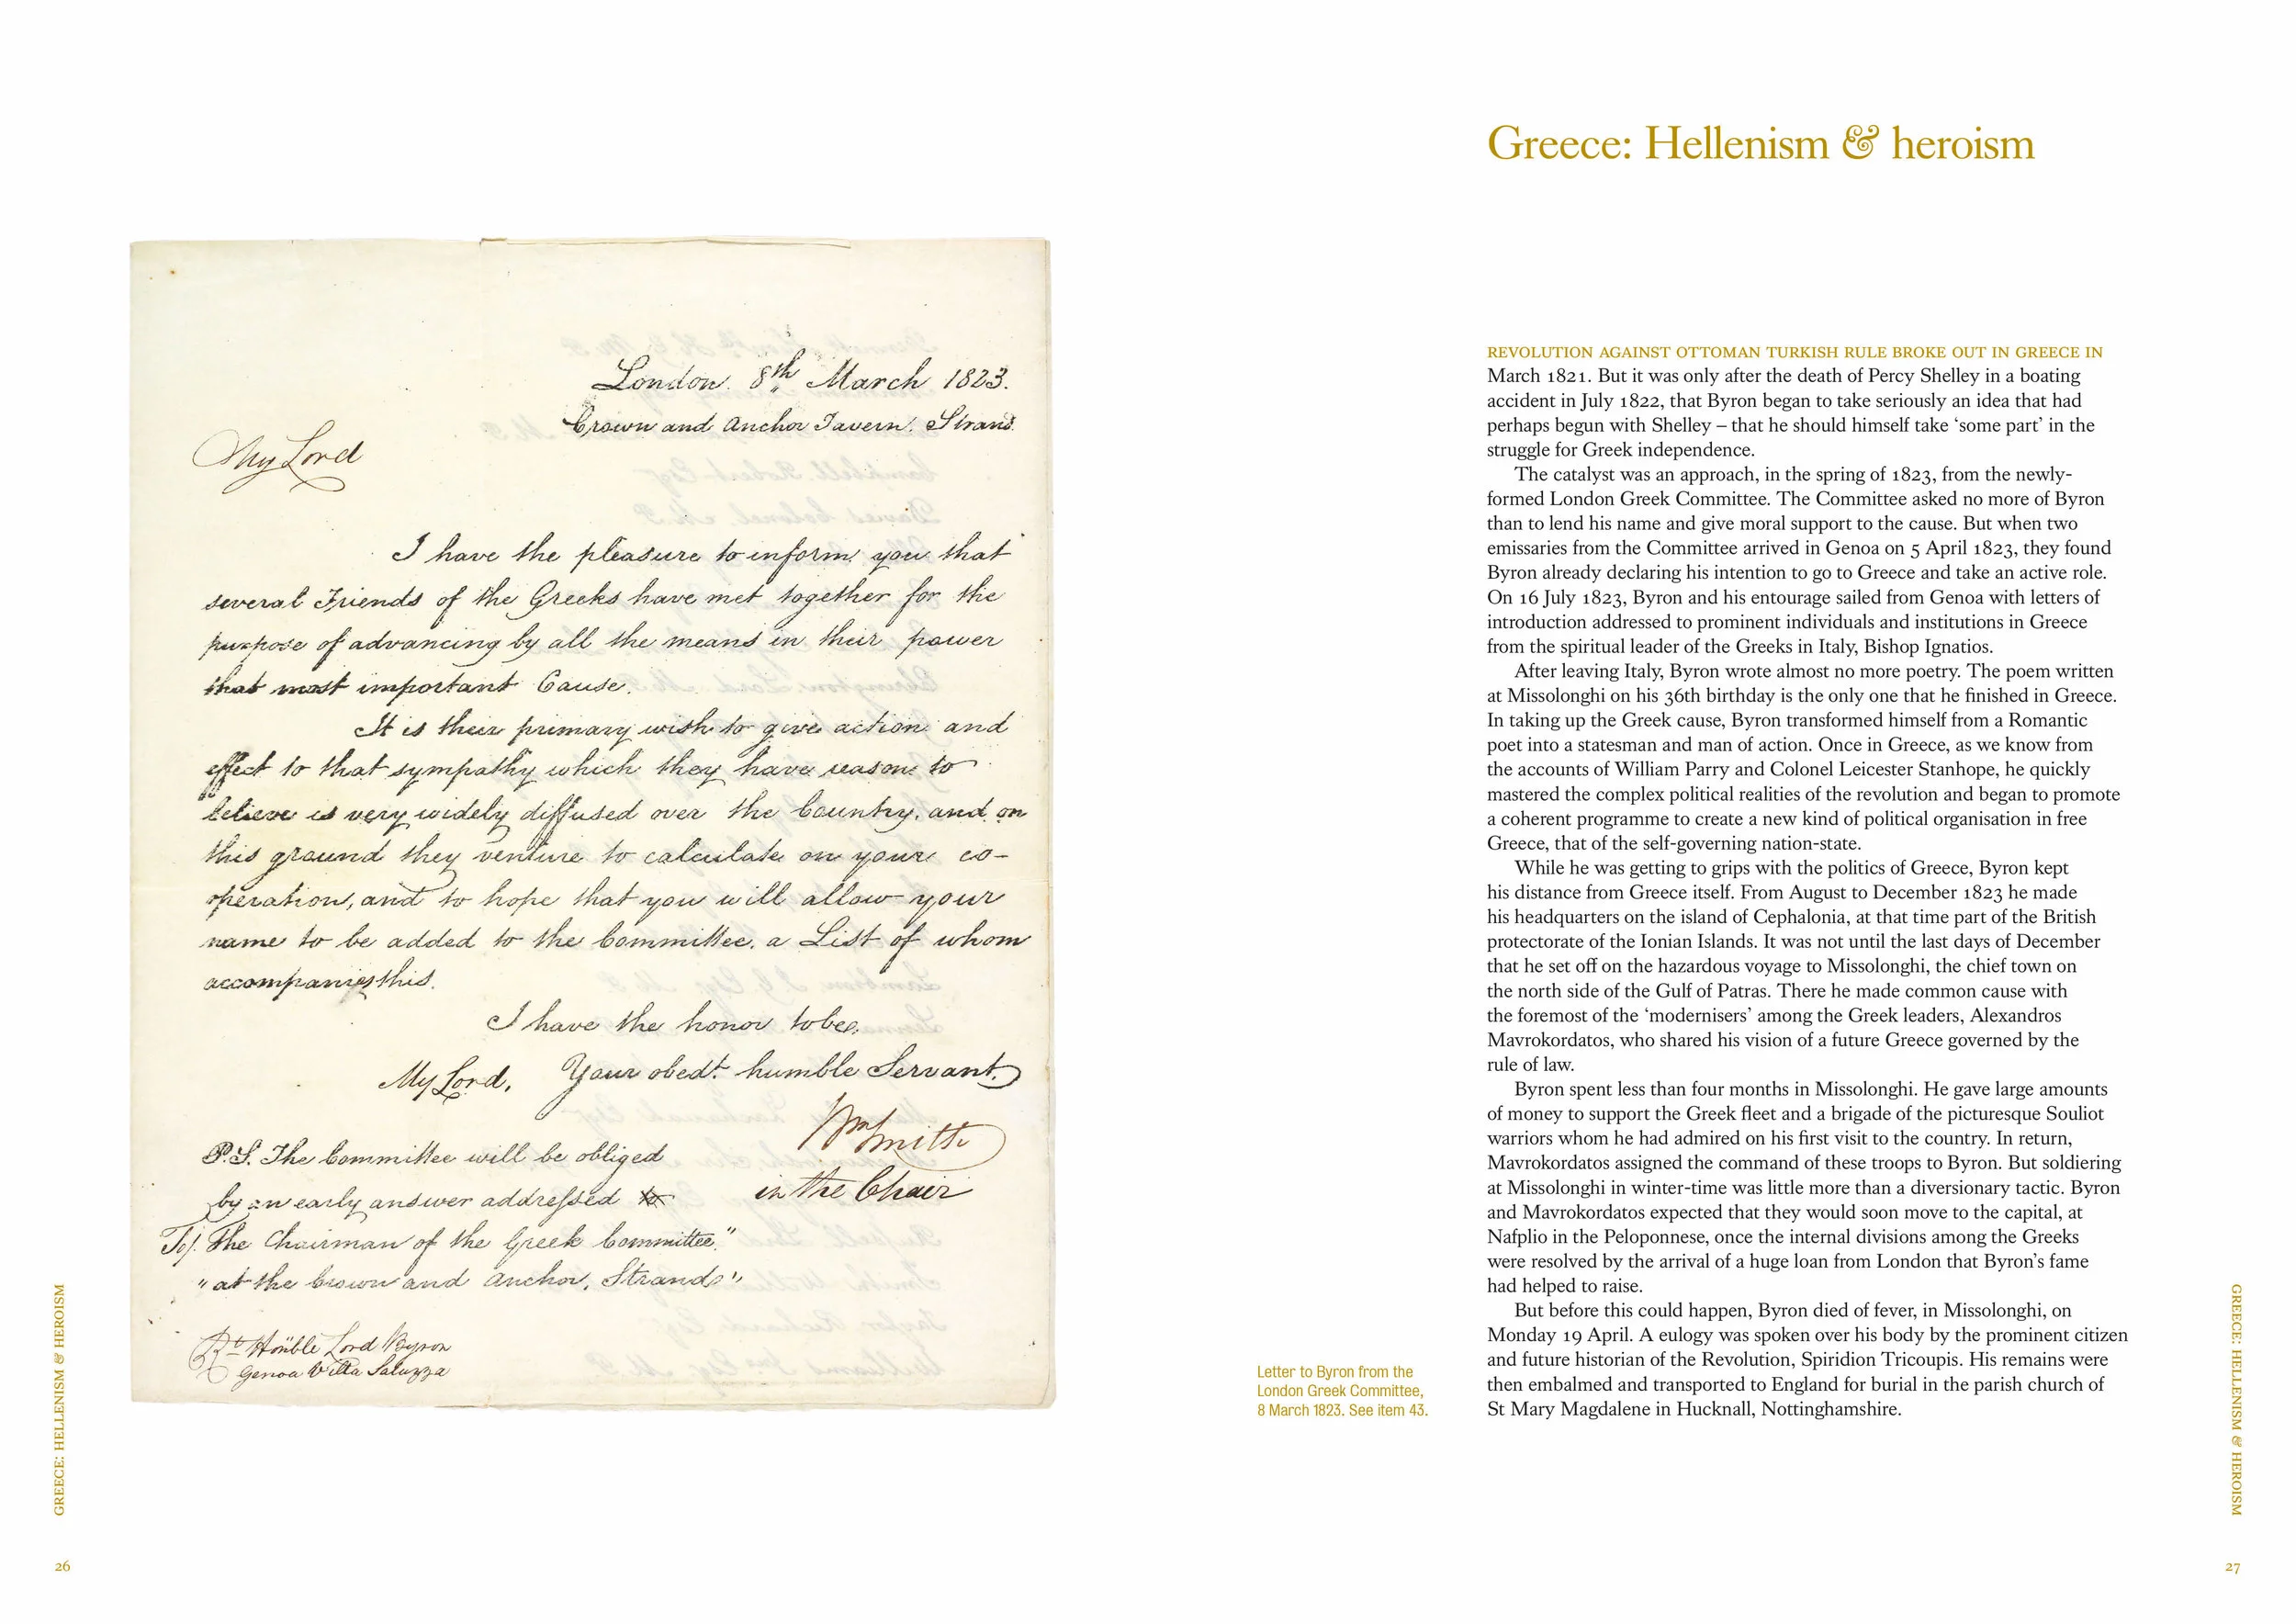 London. 8th March 1823.
Crown and Anchor Tavern. Strand.
My Lord
I have the pleasure to inform you that
several Friends of the Greeks have met together for the
purpose of advancing by all the means in their power
that most important Cause.
It is their primary wish to give action and
effect to that sympathy which they have reason to
believe is very widely diffused over the Country, and on
this ground they venture to calculate on your co-
operation, and to hope that you will allow your
name to be added to the Committee, a List of whom
accompanies this.
I have the honor to be,
My Lord, Your obedt. humble Servant.
Wm Smith
in the Chair
P.S. The Committee will be obliged
by an early answer addressed to
To/. The Chairman of the Greek Committee"
"at the Crown and Anchor, Strand"
Rt. Honble Lord Byron
Genoa Villa Saluzza
GREECE: HELLENISM & HEROISM
26
Greece: Hellenism & heroism
REVOLUTION AGAINST OTTOMAN TURKISH RULE BROKE OUT IN GREECE IN
March 1821. But it was only after the death of Percy Shelley in a boating
accident in July 1822, that Byron began to take seriously an idea that had
perhaps begun with Shelley – that he should himself take ‘some part’ in the
struggle for Greek independence.
The catalyst was an approach, in the spring of 1823, from the newly-
formed London Greek Committee. The Committee asked no more of Byron
than to lend his name and give moral support to the cause. But when two
emissaries from the Committee arrived in Genoa on 5 April 1823, they found
Byron already declaring his intention to go to Greece and take an active role.
On 16 July 1823, Byron and his entourage sailed from Genoa with letters of
introduction addressed to prominent individuals and institutions in Greece
from the spiritual leader of the Greeks in Italy, Bishop Ignatios.
After leaving Italy, Byron wrote almost no more poetry. The poem written
at Missolonghi on his 36th birthday is the only one that he finished in Greece.
In taking up the Greek cause, Byron transformed himself from a Romantic
poet into a statesman and man of action. Once in Greece, as we know from
the accounts of William Parry and Colonel Leicester Stanhope, he quickly
mastered the complex political realities of the revolution and began to promote
a coherent programme to create a new kind of political organisation in free
Greece, that of the self-governing nation-state.
While he was getting to grips with the politics of Greece, Byron kept
his distance from Greece itself. From August to December 1823 he made
his headquarters on the island of Cephalonia, at that time part of the British
protectorate of the Ionian Islands. It was not until the last days of December
that he set off on the hazardous voyage to Missolonghi, the chief town on
the north side of the Gulf of Patras. There he made common cause with
the foremost of the ‘modernisers’ among the Greek leaders, Alexandros
Mavrokordatos, who shared his vision of a future Greece governed by the
rule of law.
Byron spent less than four months in Missolonghi. He gave large amounts
of money to support the Greek fleet and a brigade of the picturesque Souliot
warriors whom he had admired on his first visit to the country. In return,
Mavrokordatos assigned the command of these troops to Byron. But soldiering
at Missolonghi in winter-time was little more than a diversionary tactic. Byron
and Mavrokordatos expected that they would soon move to the capital, at
Nafplio in the Peloponnese, once the internal divisions among the Greeks
were resolved by the arrival of a huge loan from London that Byron’s fame
had helped to raise.
But before this could happen, Byron died of fever, in Missolonghi, on
Monday 19 April. A eulogy was spoken over his body by the prominent citizen
and future historian of the Revolution, Spiridion Tricoupis. His remains were
then embalmed and transported to England for burial in the parish church of
St Mary Magdalene in Hucknall, Nottinghamshire.
Letter to Byron from the
London Greek Committee,
8 March 1823. See item 43.
GREECE: HELLENISM & HEROISM
27